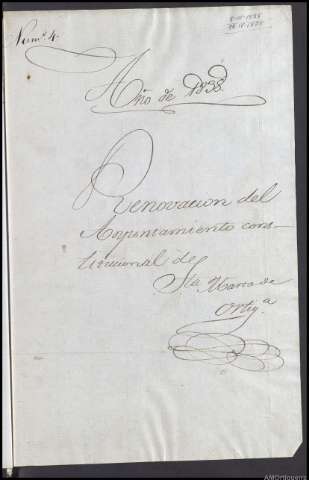 Num.º 4.
Año de 1838.
Renovacion del
Ayuntamiento cons-
titucional de
Sta. Marta de
Ortig.a
AMOrtigueira